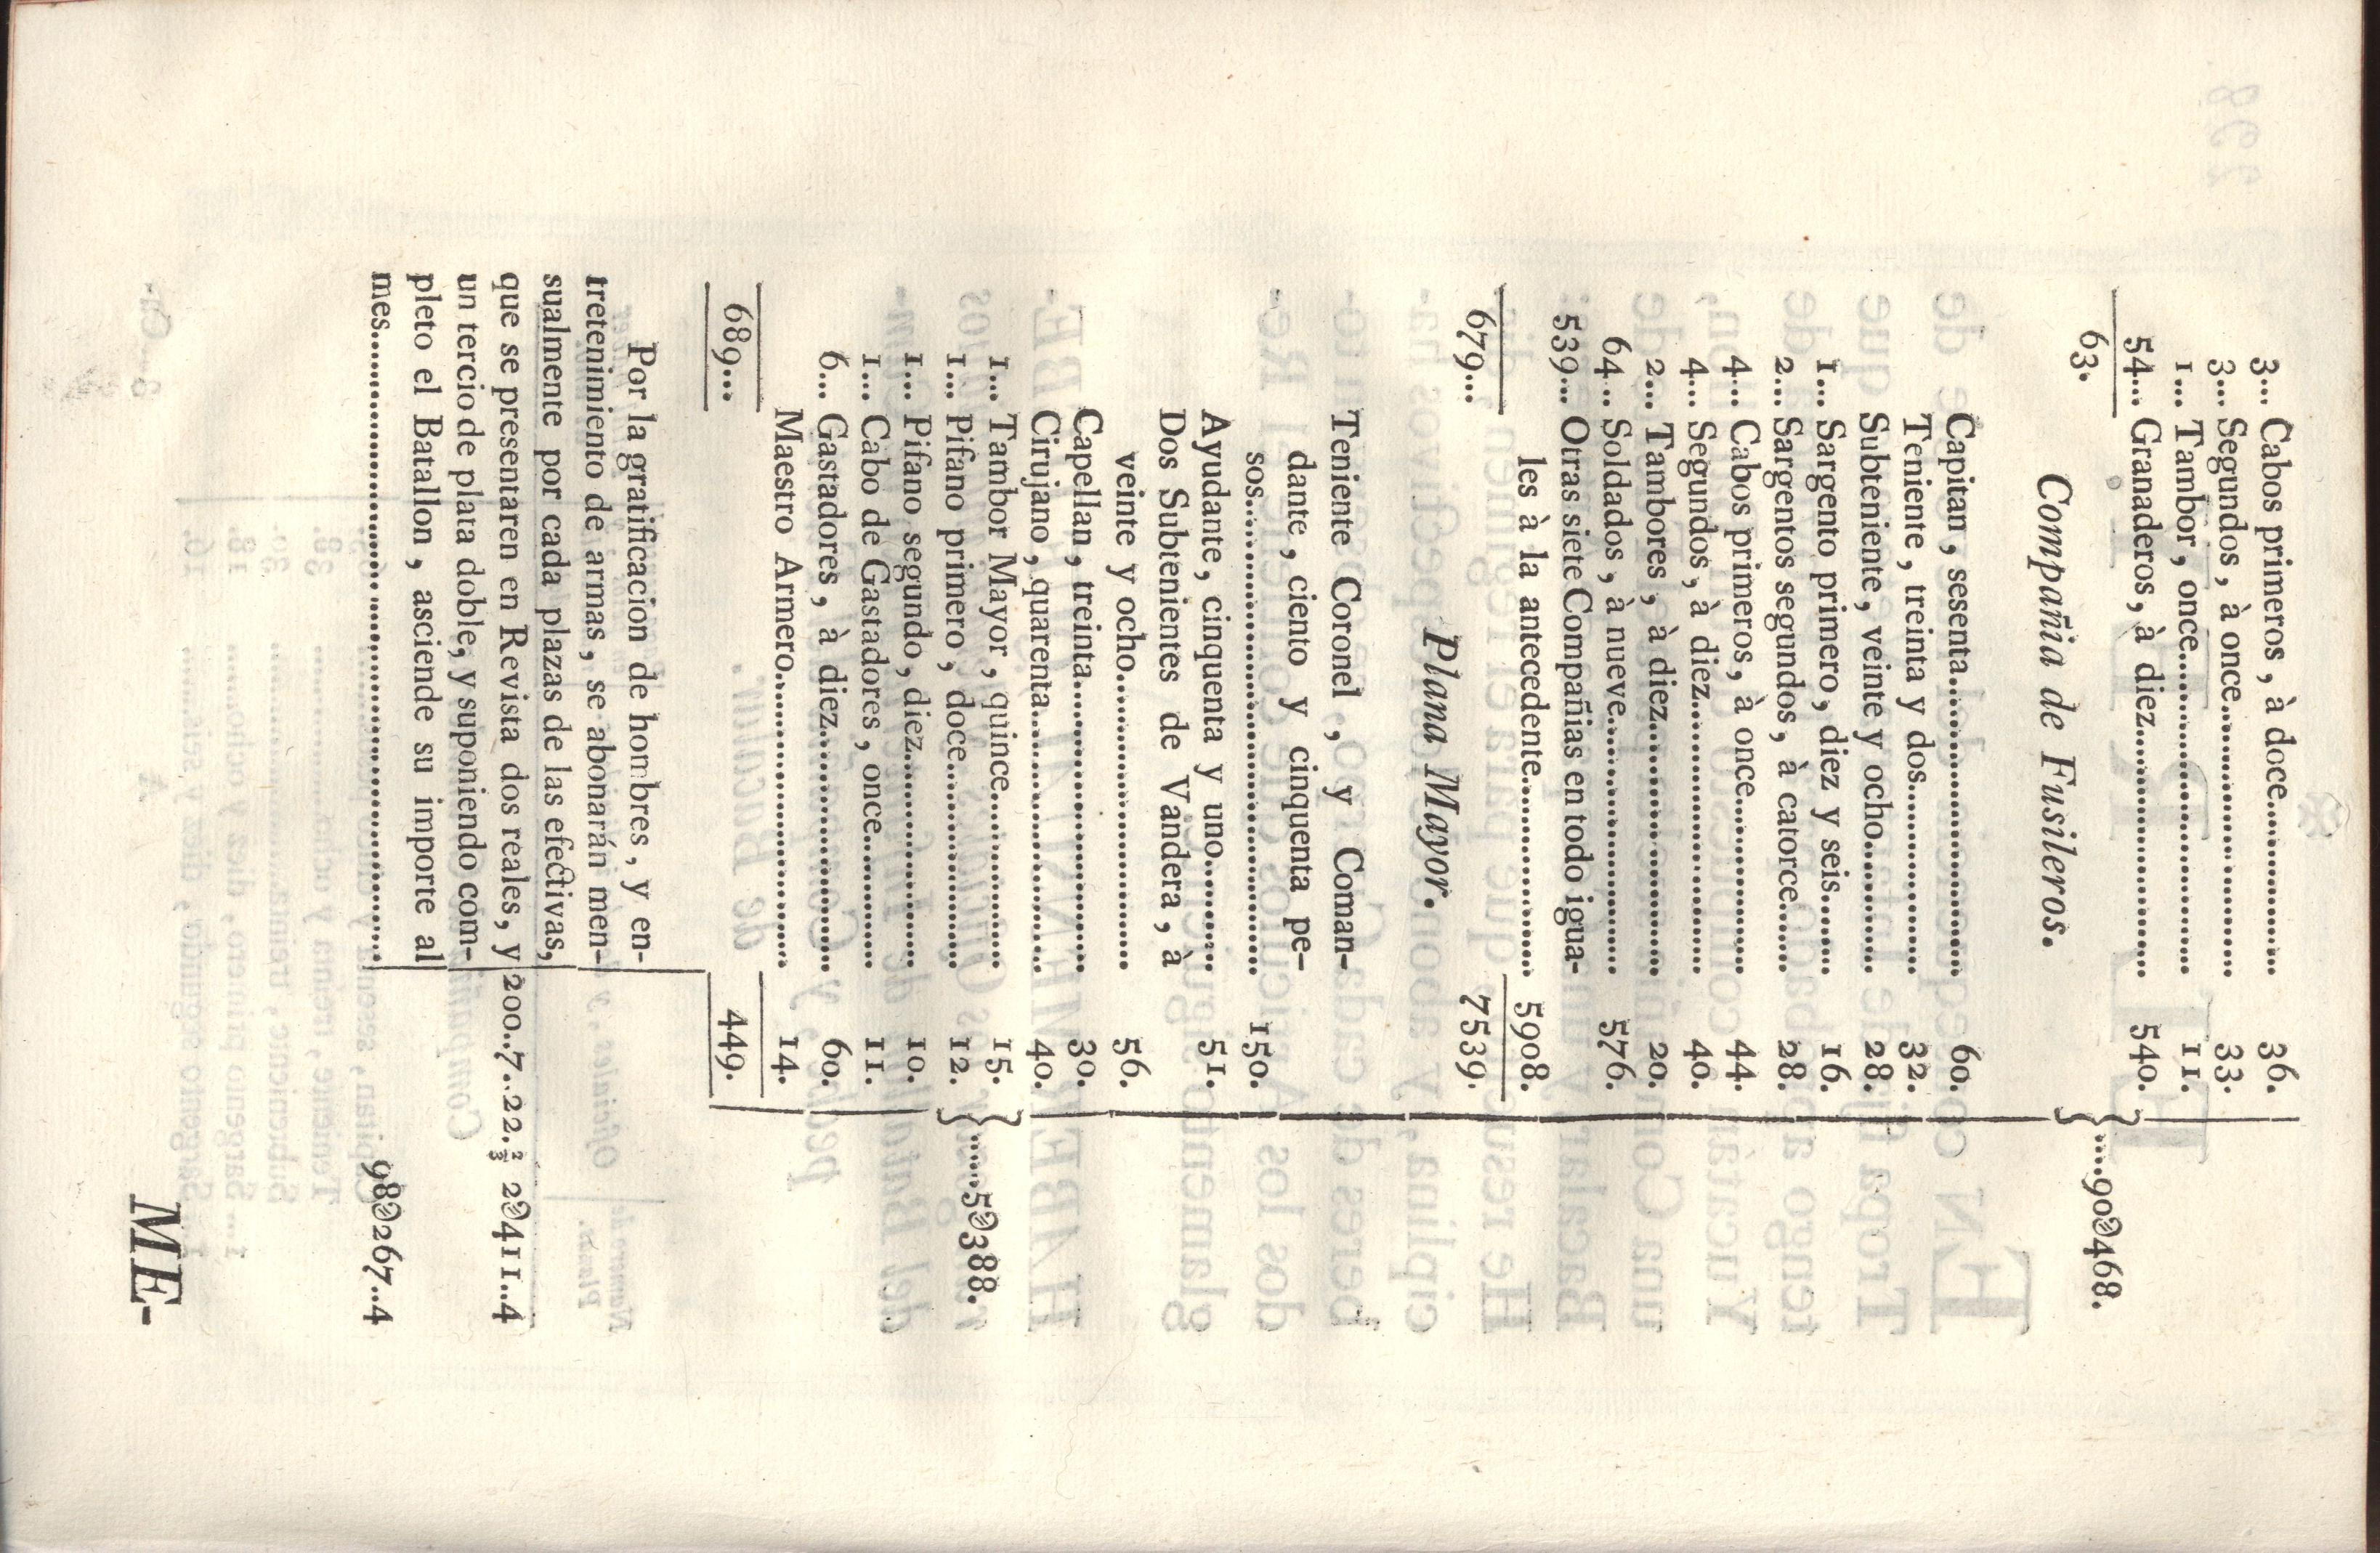 3... Cabos primeros, à doce.................... 36.
3... Segundos, à once............................ 33.
1... Tambor, once................................. 11.
54... Granaderos, à diez........................ 540.
63. }.....90@468.
Compañia de Fusileros.
Capitan, sesenta................................ 60.
Teniente, treinta y dos...................... 32.
Subteniente, veinte y ocho............. 28.
1... Sargento primero, diez y seis........ 16.
2... Sargentos segundos, à catorce...... 28.
4... Cabos primeros, à once................ 44.
4... Segundos, à diez............................ 40.
2... Tambores, à diez.......................... 20.
64... Soldados, à nueve........................ 576.
539... Otras siete Compañias en todo igua-
les à la antecedente.................... 5908.
679... 7539.
Plana Mayor.
Teniente Coronel, y Coman-
dante, ciento y cinquenta pe-
sos............................................ 150.
Ayudante, cinquenta y uno......... 51.
Dos Subtenientes de Vandera, à
veinte y ocho............................ 56.
Capellan, treinta............................ 30.
Cirujano, quarenta........................ 40.
1... Tambor Mayor, quince................ 15.
1... Pifano primero, doce.................... 12. }......5@388.
1... Pifano segundo, diez.................... 10.
1... Cabo de Gastadores, once............ 11.
6... Gastadores, à diez........................ 60.
Maestro Armero............................ 14.
689... 449.
Por la gratificacion de hombres, y en-
tretenimiento de armas, se abonarán men-
sualmente por cada plazas de las efectivas,
que se presentaren en Revista dos reales, y 200..7..22.⅔ 2@411..4
un tercio de plata doble, y suponiendo com-
pleto el Batallon, asciende su importe al
mes............................................................ 98@267..4
ME-